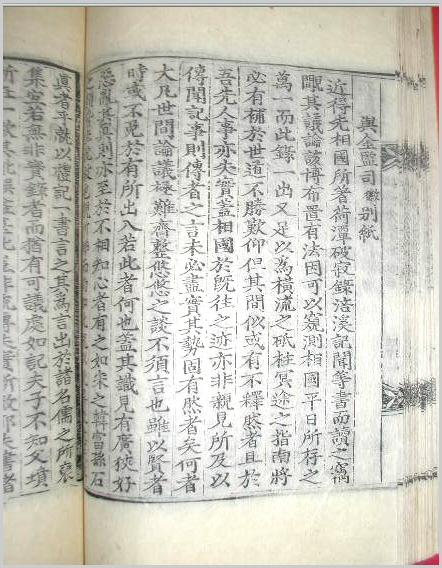 與金監司徽別紙
近得先相國所著荷潭破寂錄涪溪記聞等書而讀之竊
瞷其議論該博布置有法固可以窺測相國平日所存之
萬一而此錄一出又足以為橫流之砥柱冥途之指南將
必有補於世道不勝歎仰但其間似或有不釋然者且於
吾先人事亦失實蓋相國於旣往之迹亦非親見所及以
傳聞記事則傳者之言未必盡實其勢固有然者矣何者
大凡世間論議極難齊整悠悠之談不須言也雖以賢者
時或不免於有所出入若此者何也蓋其識見有廣狹好
惡亂其眞則亦至於不相知心者有之如宋之韓富孫石
眞者乎就以禮記一書言之其爲言出於諸名儒之所裒
集宜若無非實錄者而猶有可議處如記夫子不知父墳